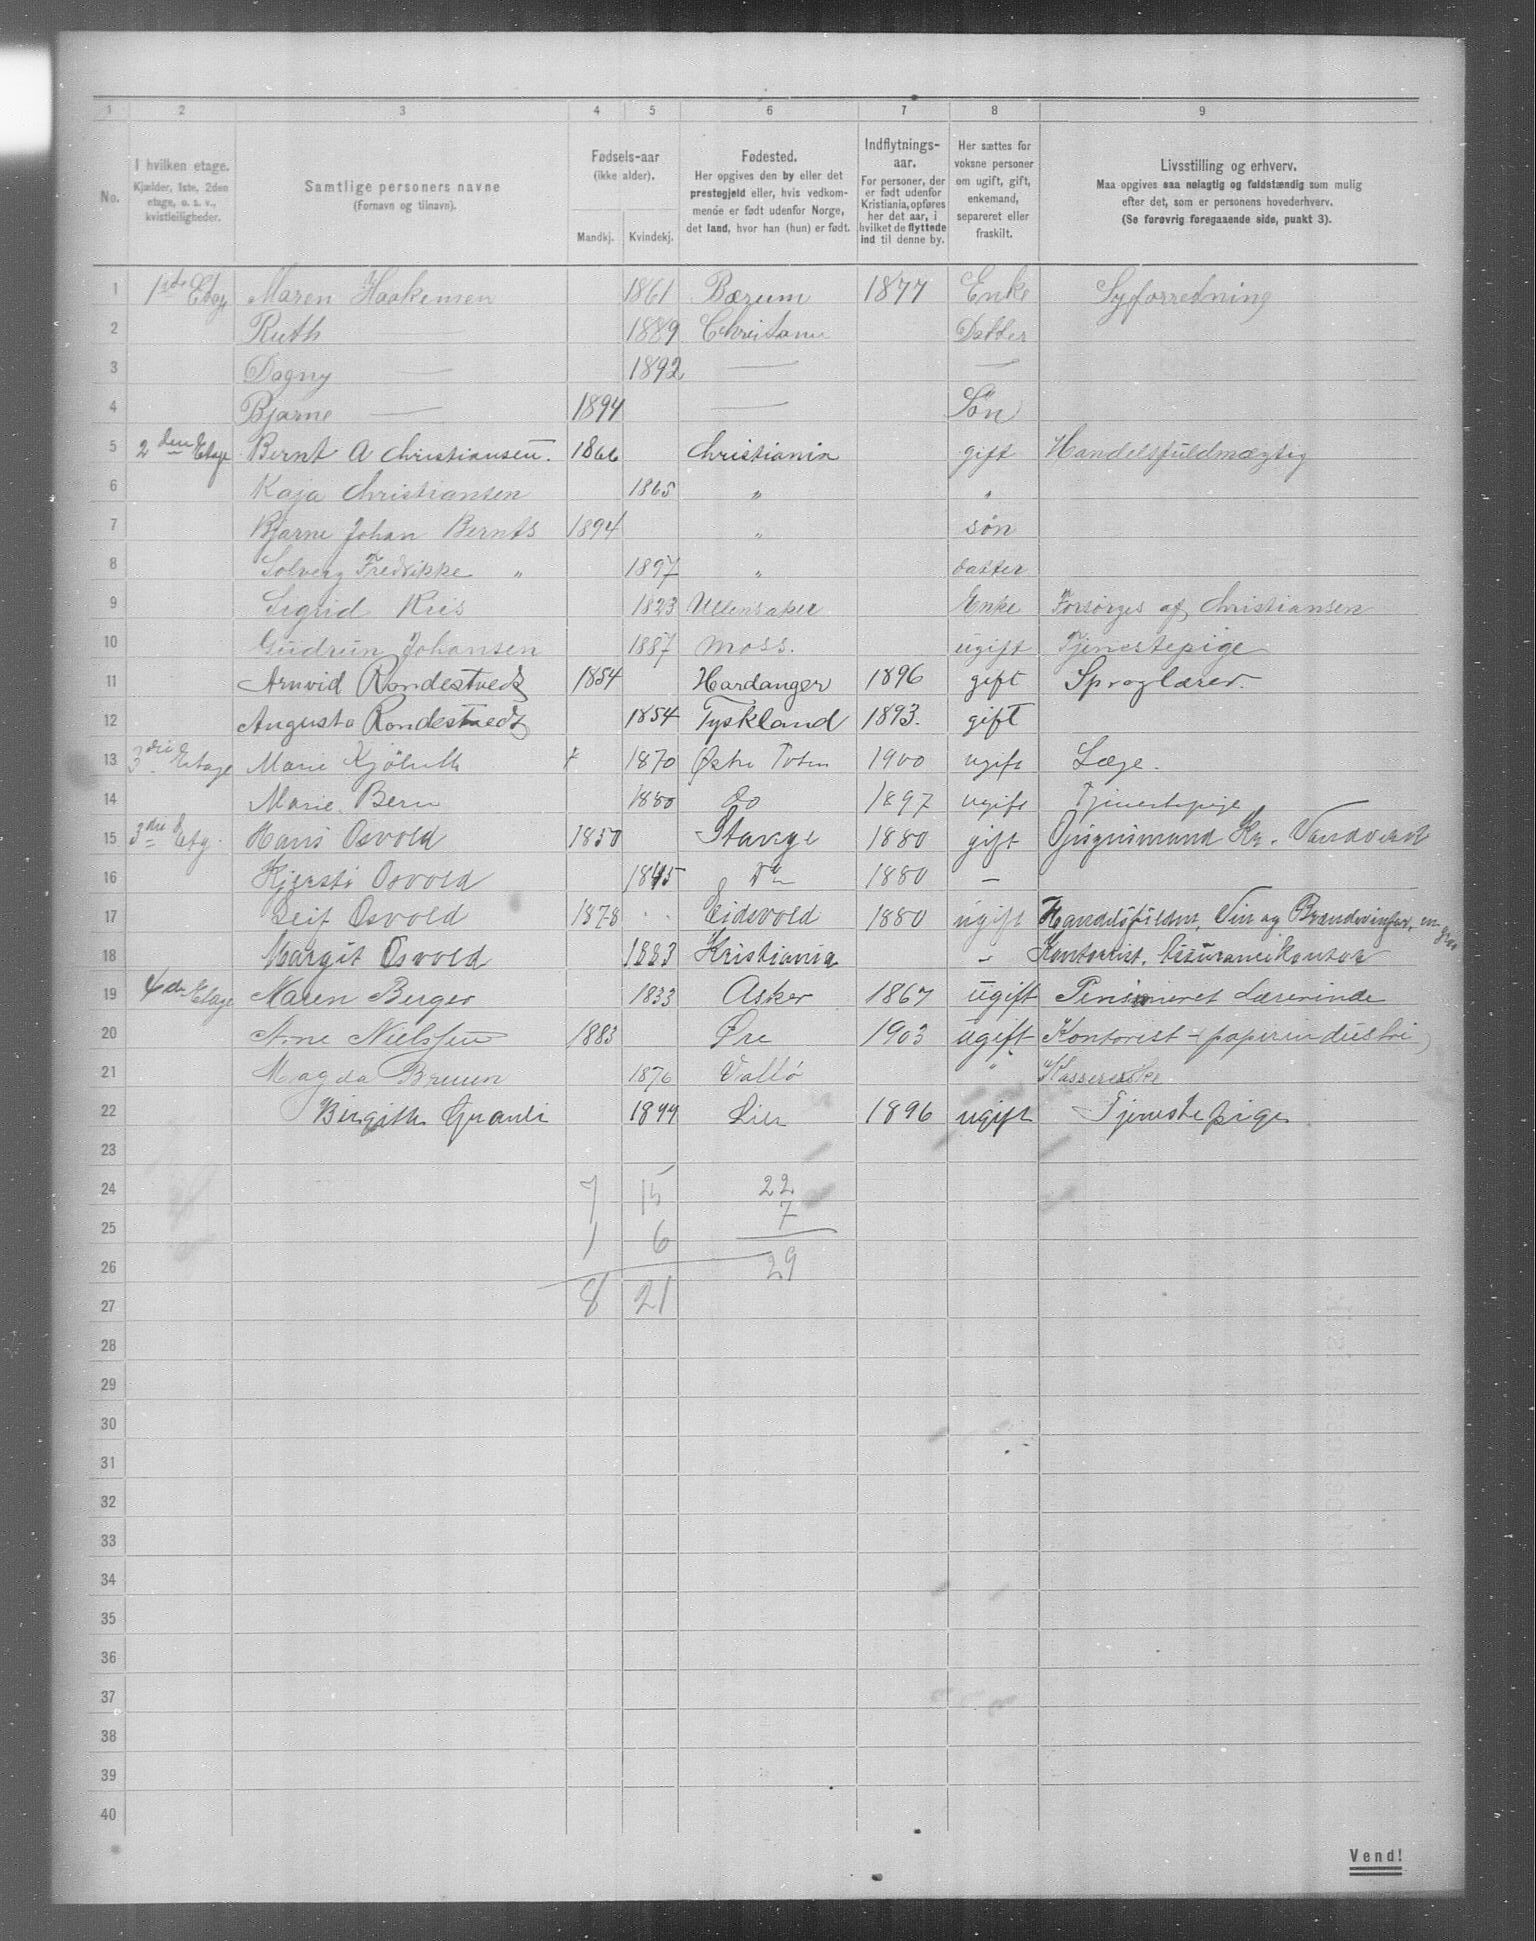 1 2 3 4 5 6 7 8 9
No.
I hvilken etage.
Kjælder, 1ste, 2den
etage, o. s. v.,
kvistleiligheder.
Samtlige personers navne
(Fornavn og tilnavn).
Fødsels-aar
(ikke alder).
Mandkj. Kvindekj.
Fødested.
Her opgives den by eller det
prestegjeld eller, hvis vedkom-
mende er født udenfor Norge,
det land, hvor han (hun) er født.
Indflytnings-
aar.
For personer, der
er født udenfor
Kristiania, opføres
her det aar, i
hvilket de flyttede
ind til denne by.
Her sættes for
voksne personer
om ugift, gift,
enkemand,
separeret eller
fraskilt.
Livsstilling og erhverv.
Maa opgives saa nøiagtig og fuldstændig som mulig
efter det, som er personens hovederhverv.
(Se forøvrig foregaaende side, punkt 3).
1 1ste Etage Maren Haakensen 1861 Bærum 1877 Enke Syforretning
2 Ruth — 1889 Datter
3 Dagny — 1892 — —
4 Bjarne — 1894 — Søn
5 2den Etage Bernt A Christiansen. 1866 Christiania gift Handelsfuldmægtig
6 Kaja Christiansen 1865 " "
7 Bjarne Johan Bernts 1894 " søn
8 Solveig Fredrikke " 1897 " datter
9 Sigrid Riis 1823 Ullensaker Enke Forsørges af Christiansen
10 Gudrun Johansen 1887 Moss. ugift Tjenestepige
11 Arnvid Rondestvedt 1854 Hardanger 1896 gift Sproglærer.
12 Augusta Rondestvedt 1854 Tyskland 1893. gift
13 3die Etage Marie Kjølseth 1870 Østre Toten 1900 ugift Læge.
14 Marie 1880 Do 1897 ugift Tjenestepige
15 3die Etg. Hans Osvold 1850 Stange 1880 gift Opsynsmand Kr. Vandverk
16 Kjersti Osvold 1845 Do 1880 —
17 Leif Osvold 1878 Eidsvold 1880 ugift Vin og
18 Margit Osvold 1883 Kristiania " Kontorist, Assurancekontor
19 4de Etage Maren Berger 1833 Asker 1867 ugift Pensioneret Lærerinde
20 Arne Nielssen 1883 Øre 1903 ugift Kontorist - papirindustri
21 Magda Bruun 1876 Vallø " Kassererske
22 Birgitte 1877 Lier 1896 ugift Tjenestepige
23
24 7 15 22
25 1 6 7
26 29
27 8 21
28
29
30
31
32
33
34
35
36
37
38
39
40
Vend!